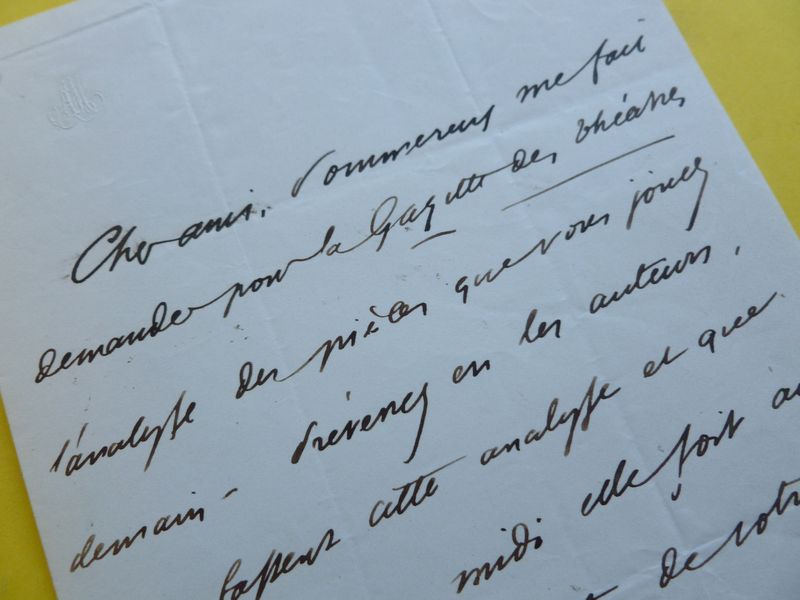 Cher ami, Pommereux me fait
demander pour la Gazette des théatres
l'analyse des pièces que vous jouez
demain - Prévenez en les auteurs,
fassent cette analyse et que
midi elle soit au
de votre